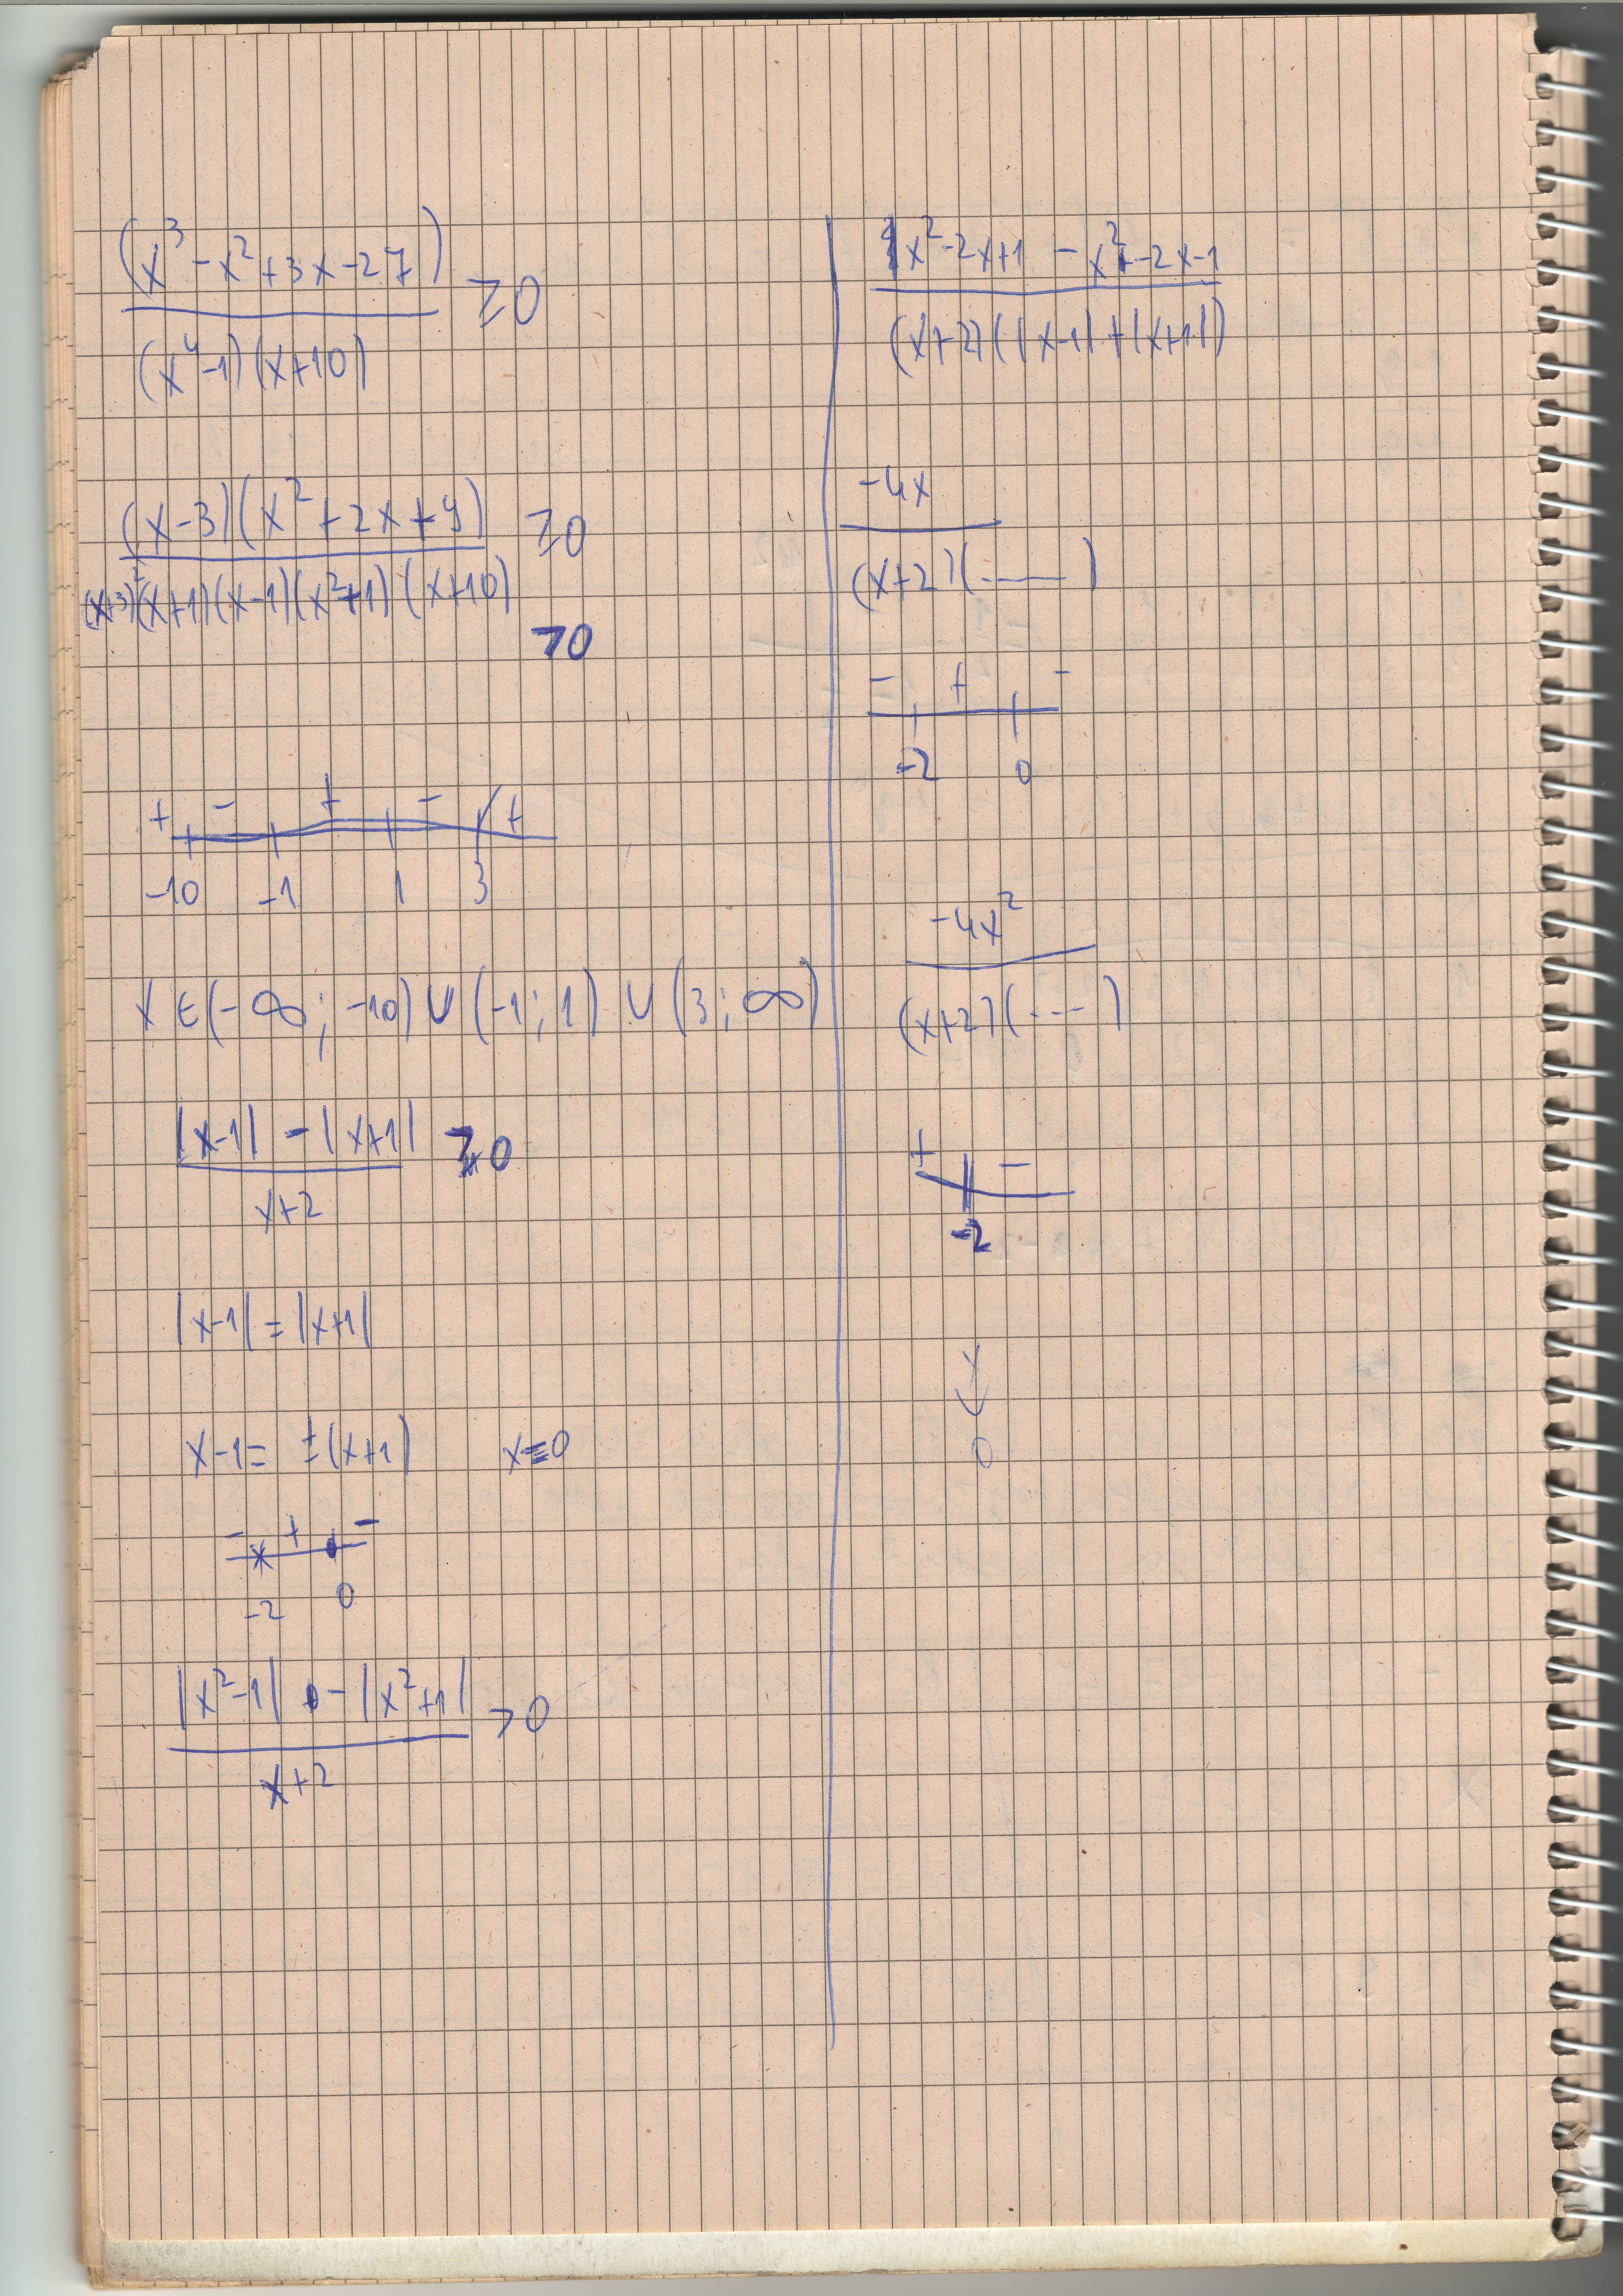 (x³ - x² + 3x - 27)
≥ 0
(x⁴-1)(x+10)
(x-3)(x² + 2x + 9)
≥ 0
(x+3)²(x+1)(x-1)(x²+1)(x+10)
> 0
+ - + - +
-10 -1 1 3
x ∈ (-∞; -10) ∪ (-1; 1) ∪ (3; ∞)
|x-1| - |x+1|
≥ 0
x+2
|x-1| = |x+1|
x-1 = ±(x+1) x=0
- + -
-2 0
|x²-1| - |x²+1|
> 0
x+2
x²-2x+1 - x²-2x-1
(x+2)(|x-1|+|x+1|)
-4x
(x+2)(——)
- + -
-2 0
-4x²
(x+2)(---)
+ -
-2
0